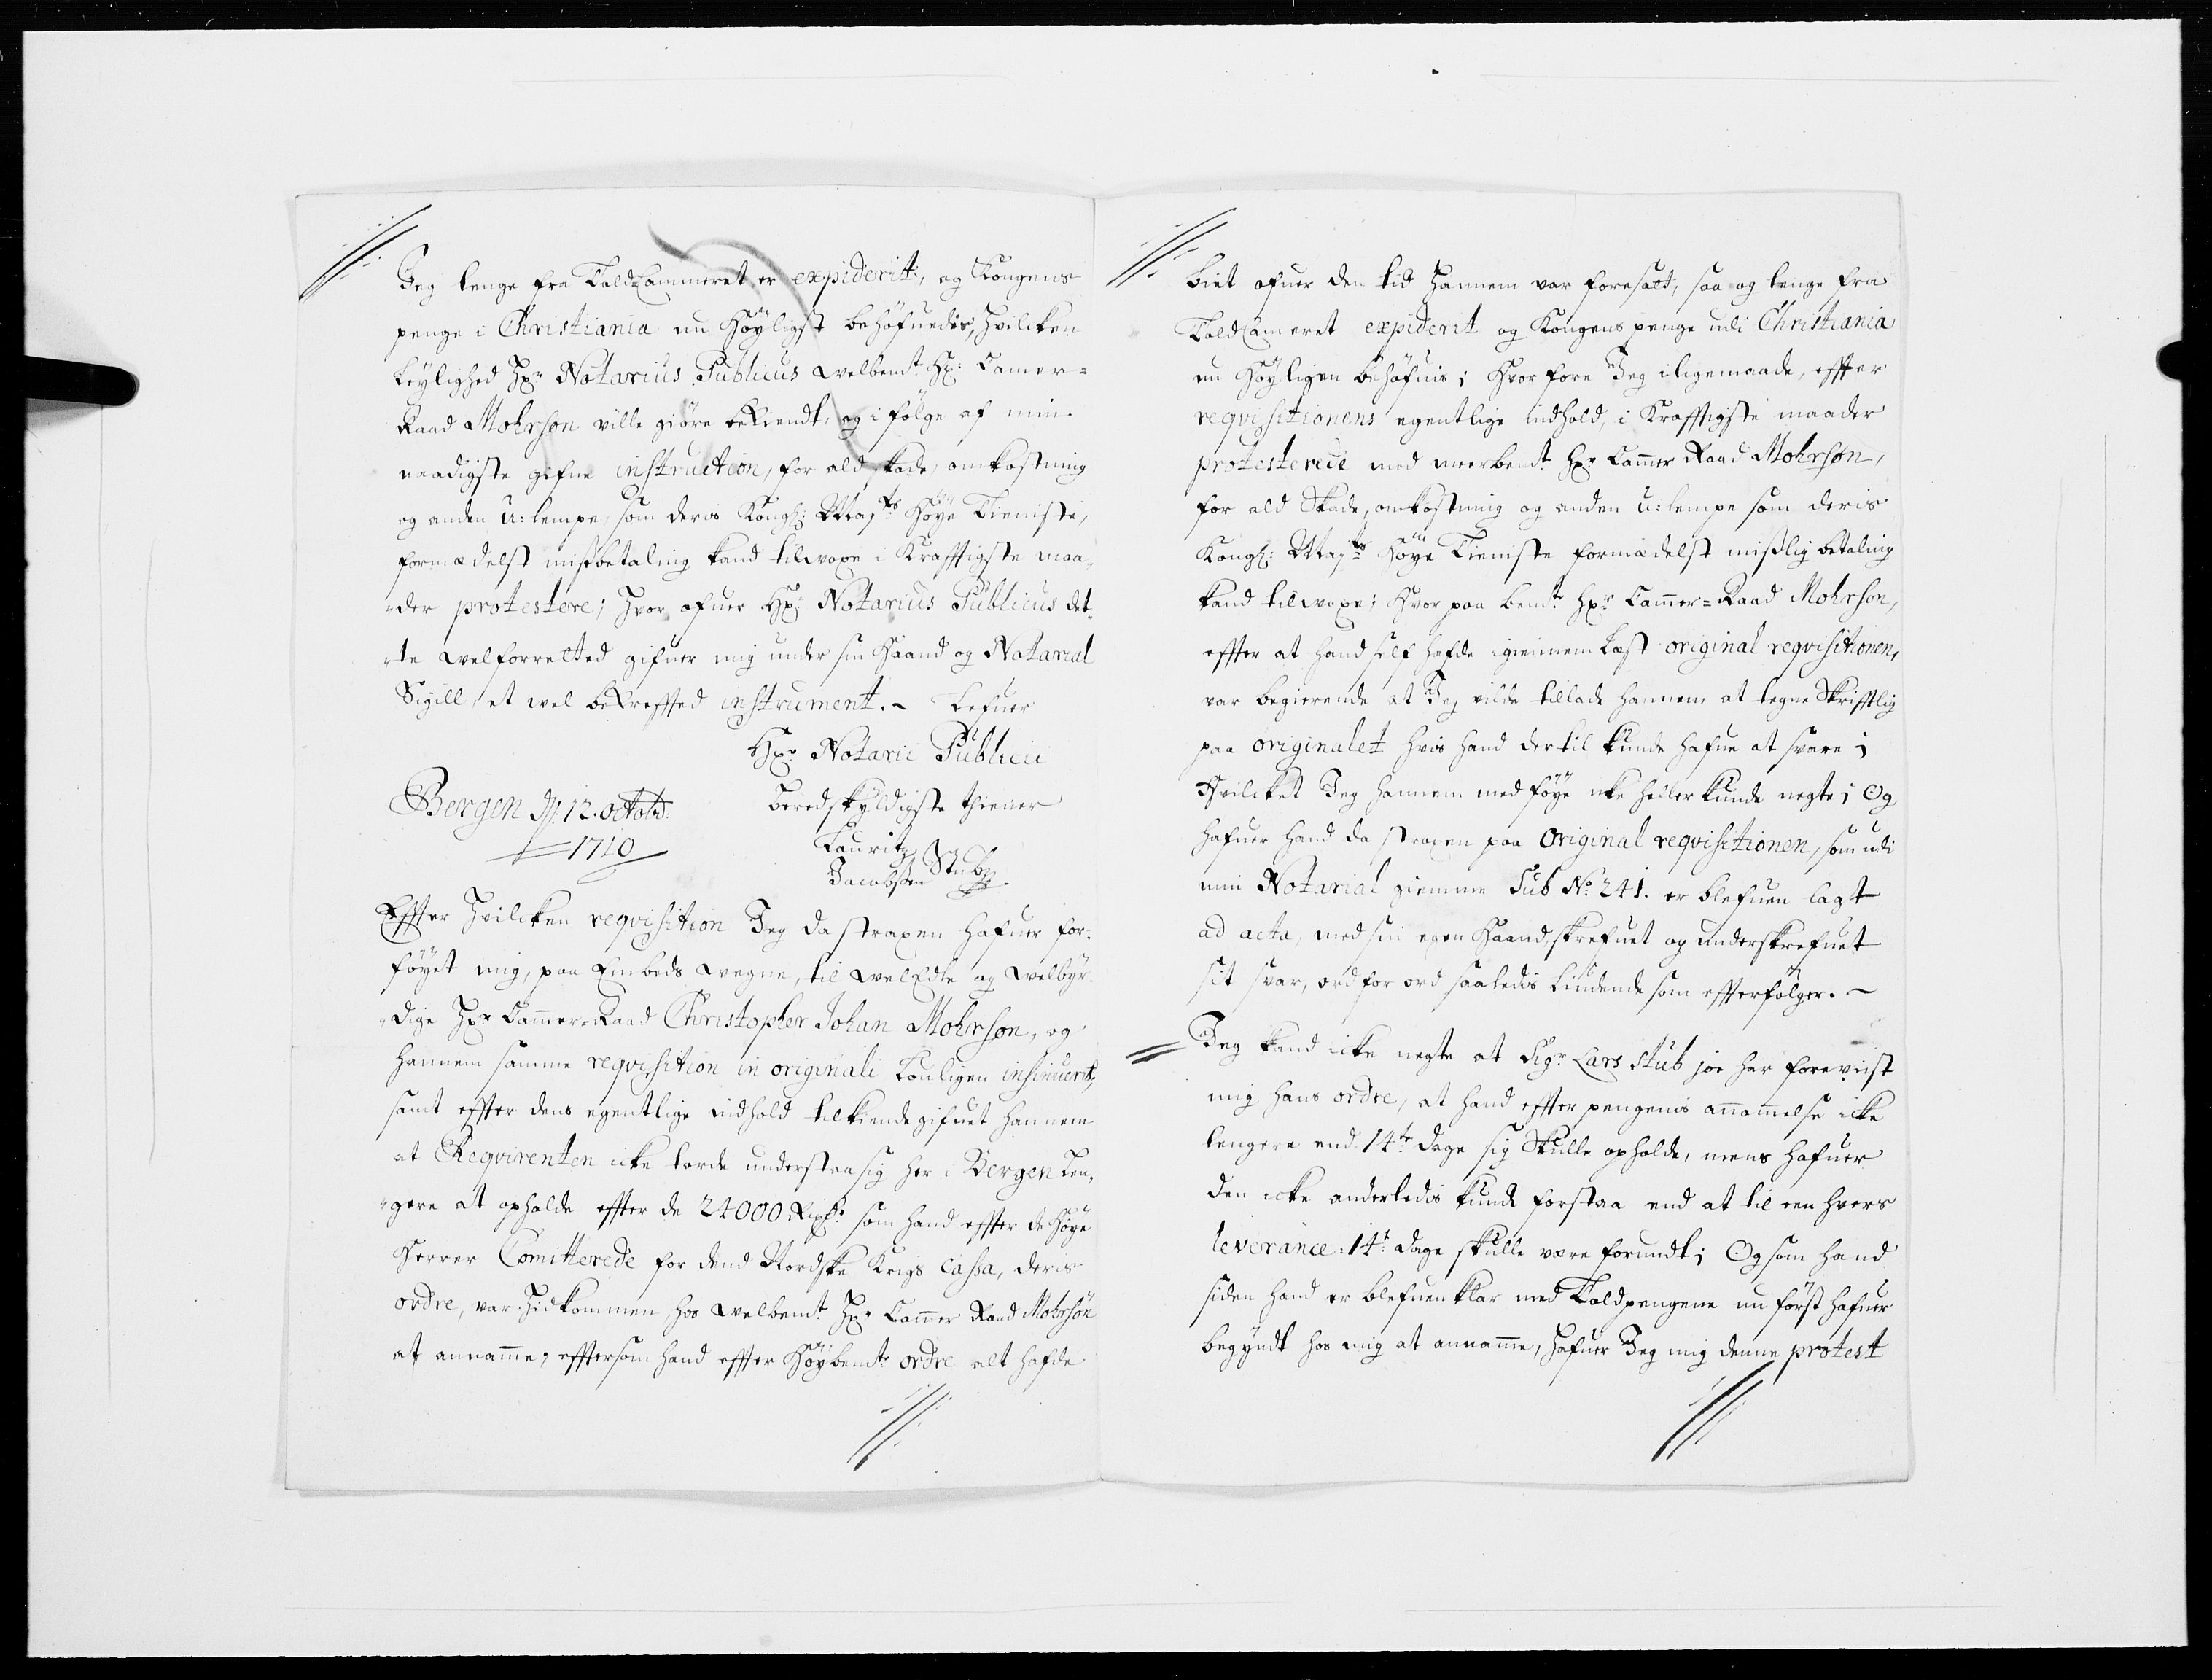 Jeg lenge fra ToldCammeret er expiderit, og Kongens
penge i Christiania nu Høyligst behøfuedis, hvilcken
Leylighed Hr Notarius Publicus welbemt Hr: Camer-
Raad Mohrson ville giöre bekiendt, og i følge af min
naadigste gifne instruction, for ald skade, omkostning
og anden U:lempe, som deris Kongl: Mayts Höye Tieniste,
formedelst misbetaling kand tilvoxe i Krafftigste maa-
der protestere; hvor ofuer Hr Notarius Publicus det-
te welforrettet gifuer mig under sin Haand og Notarial
Sigill, et vel bekreffted instrument. Lefuer
Hr Notarii Publicii
Beredskyldigste thiener
Bergen d: 12. octobr:
1710
Lauritz
Jacobsen Stub
Effter hvilcken reqvisition Jeg da straxen hafuer for-
föyet mig, paa Embeds wegne, til welEdle og welbyr-
dige Hr Cammer-Raad Christopher Johan Mohrson, og
hannem samme reqvisition in originali Louligen insinuerit,
samt effter dens egentlige indhold tilkiende gifuet hannem
at Reqvirenten icke torde understaa sig her i Bergen len-
gere at opholde effter de 24000 Rixdr som hand effter de höye
Herrer Comitterede for dend Nordske Krigs Cassa, deris
ordre, var hidkommen hos welbemt Hr Cammer Raad Mohrson
at annamme; efftersom hand effter Höybemte ordre alt hafde
biet ofuer den tid hannem var foresatt, saa og lenge fra
ToldCameret expiderit og Kongens penge udi Christiania
nu Höyligen behöfuis; Hvorfore Jeg iligemaade, effter
reqvisitionens egentlige indhold, i Krafftigste maader
protesterede mod meerbemt Hr Cammer Raad Mohrson,
for ald Skade, omkostning og anden u:lempe som deris
Kongl: Mayts Höye Tieniste formedelst mislig betaling
kand tilvoxe; Hvorpaa bemte Hr Cammer-Raad Mohrson,
effter at hand self hafde igiennem Læst original reqvisitionen,
var begierende at Jeg vilde tillade hannem at tegne Skrifftlig
paa originalet hvis hand dertil kunde hafue at svare;
Hvilcket Jeg hannem med föye icke heller kunde negte; Og
hafuer hand da straxen paa Original reqvisitionen, som udi
min Notarial giemme Sub No: 241. er blefuen lagt
ad acta, med sin egen Haand, skrefuet og underskrefuet
sit svar, ord for ord saaledis Liudende som effterfölger.
Jeg kand icke negte at Sigr Lars Stub joe har foreviist
mig hans ordre, at hand effter pengenis annammelse icke
lengere end 14te dage sig Skulle opholde, mens hafuer
den icke anderledis kunde forstaa end at til een hvers
leverance: 14t dage skulle være forundt; Og som hand
siden hand er blefuen klar med Toldpengene nu först hafuer
begyndt hos mig at annamme, hafuer Jeg mig denne protest